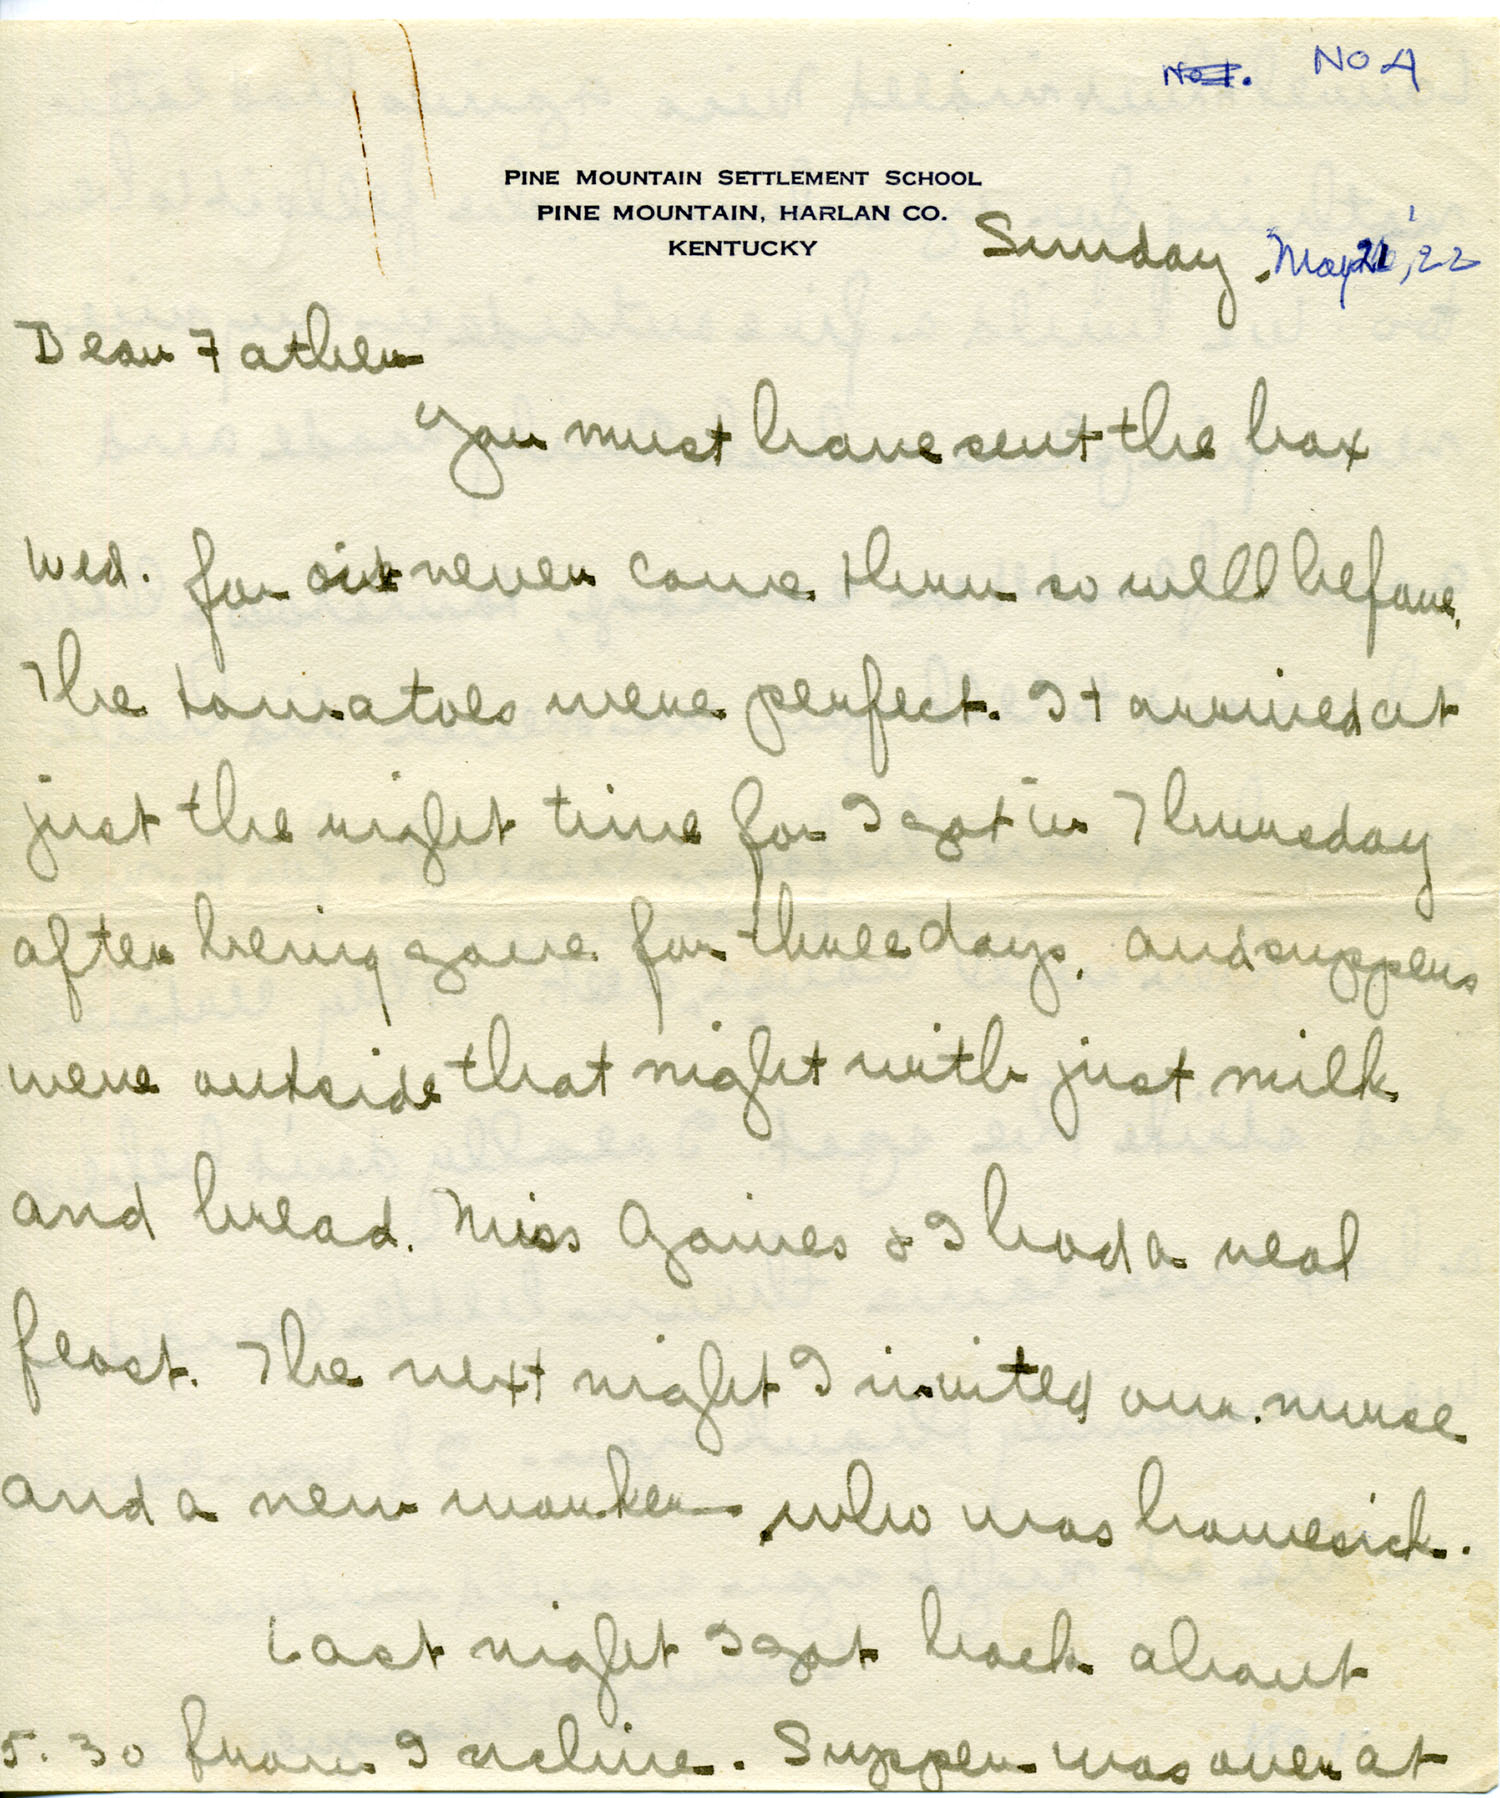 No 4
PINE MOUNTAIN SETTLEMENT SCHOOL
PINE MOUNTAIN, HARLAN CO.
KENTUCKY
Sunday, May 21, '22
Dear Father
You must have sent the box
Wed. for it never came thru so well before.
The tomatoes were perfect. It arrived at
just the right time for I got in Thursday
after being gone for three days, and suppers
were outside that night with just milk
and bread. Miss Gaines & I had a real
feast. The next night I invited our nurse
and a new worker who was homesick.
Last night I got back about
5.30 from Incline. Supper was over at